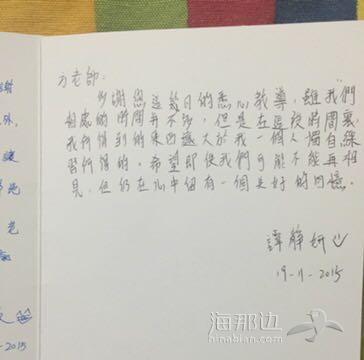 外,
老
-2015
方老師:
多謝您這幾日的悉心教導,雖我們
相處的時間并不多,但是在這段時間裏
我所悟到的東西遠大於我一個人獨自練
習所悟的。希望即使我們可能不能再相
見,但仍在心中留有一個美好的回憶。
譚靜妍
19-11-2015
海那边
hainabian.com